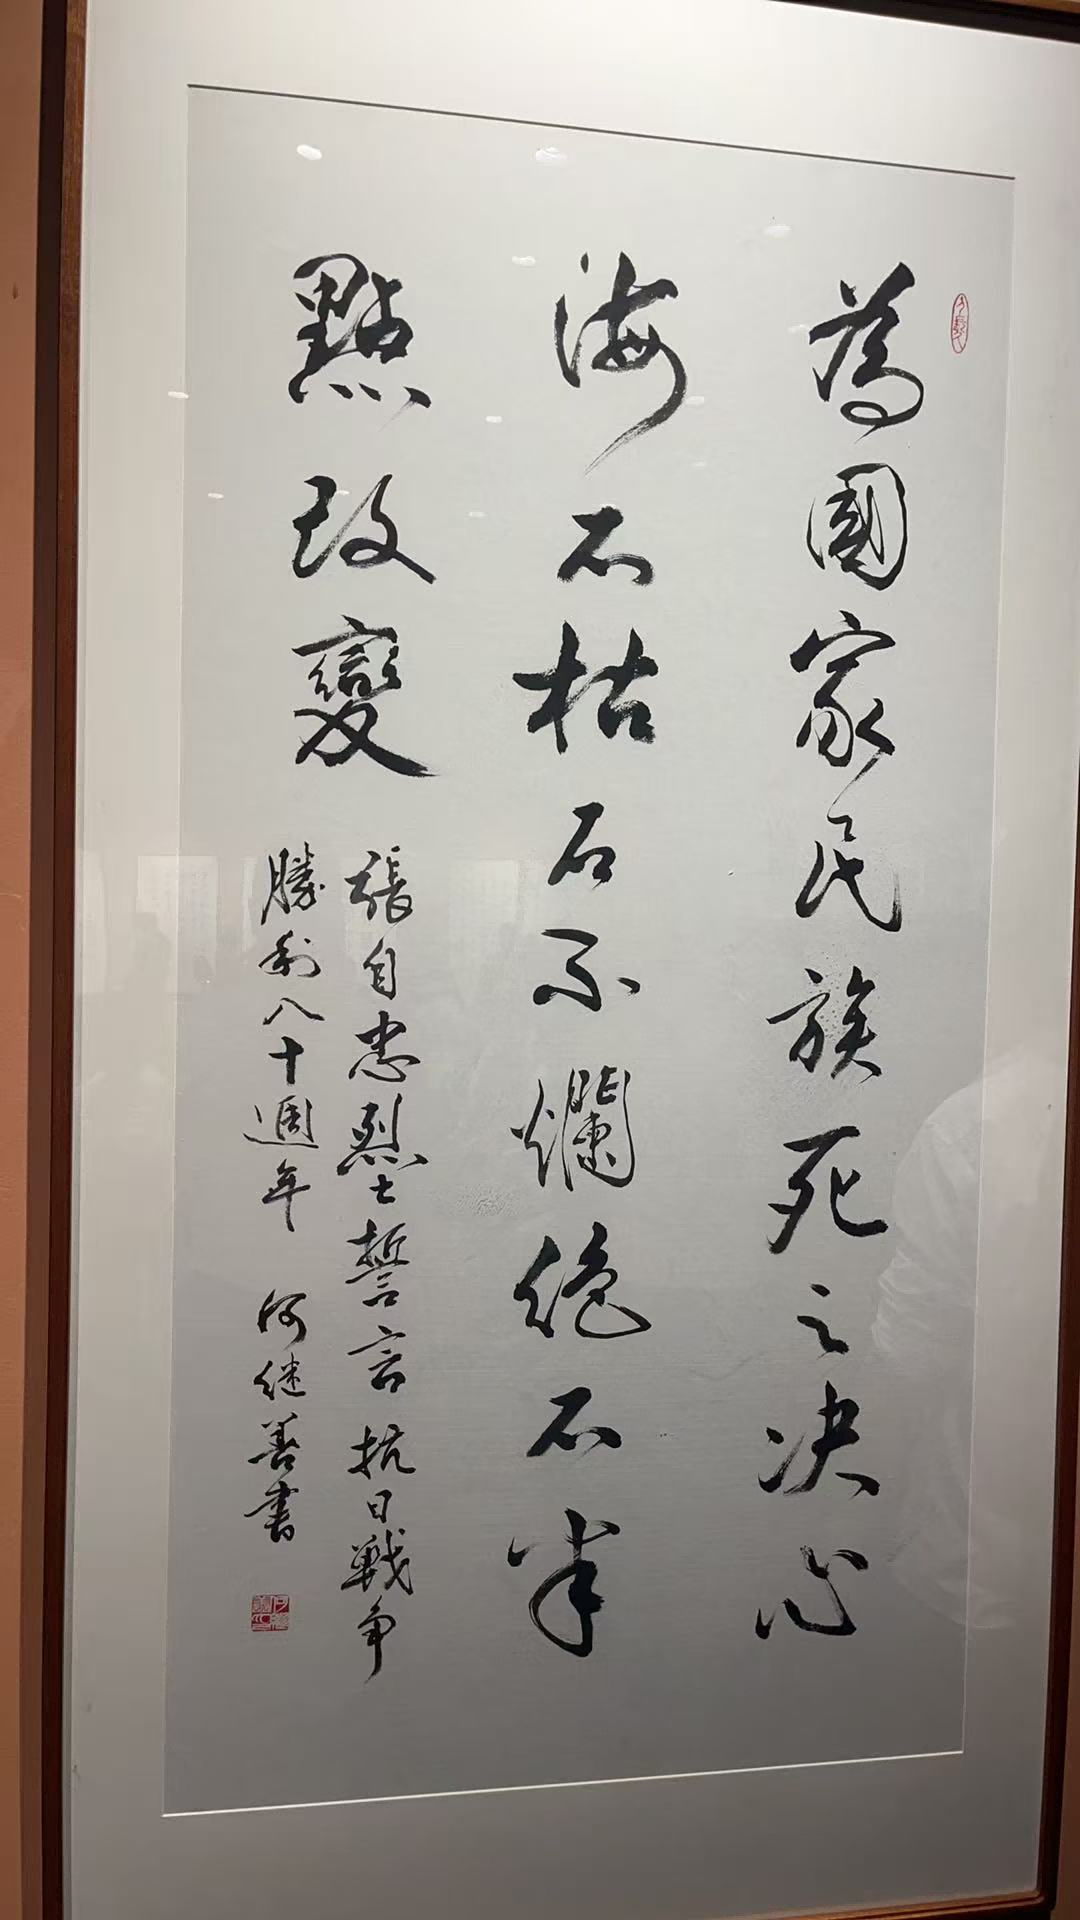 為國家民族死之决心
海不枯石不爛絶不半
點改變
張自忠烈士誓言抗日戰争
勝利八十週年 何继善書